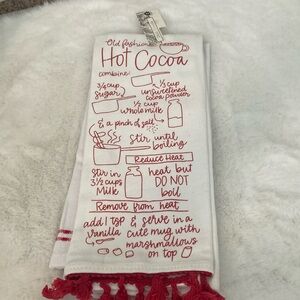 Old fashioned
Hot Cocoa
combine:
3/4 cup sugar
1/3 cup unsweetened cocoa powder
1/2 cup whole milk
& a pinch of salt
stir until boiling
Reduce Heat
stir in 3 1/2 cups Milk
heat but DO NOT boil
Remove from heat
add 1 tsp vanilla
& serve in a cute mug with marshmallows on top